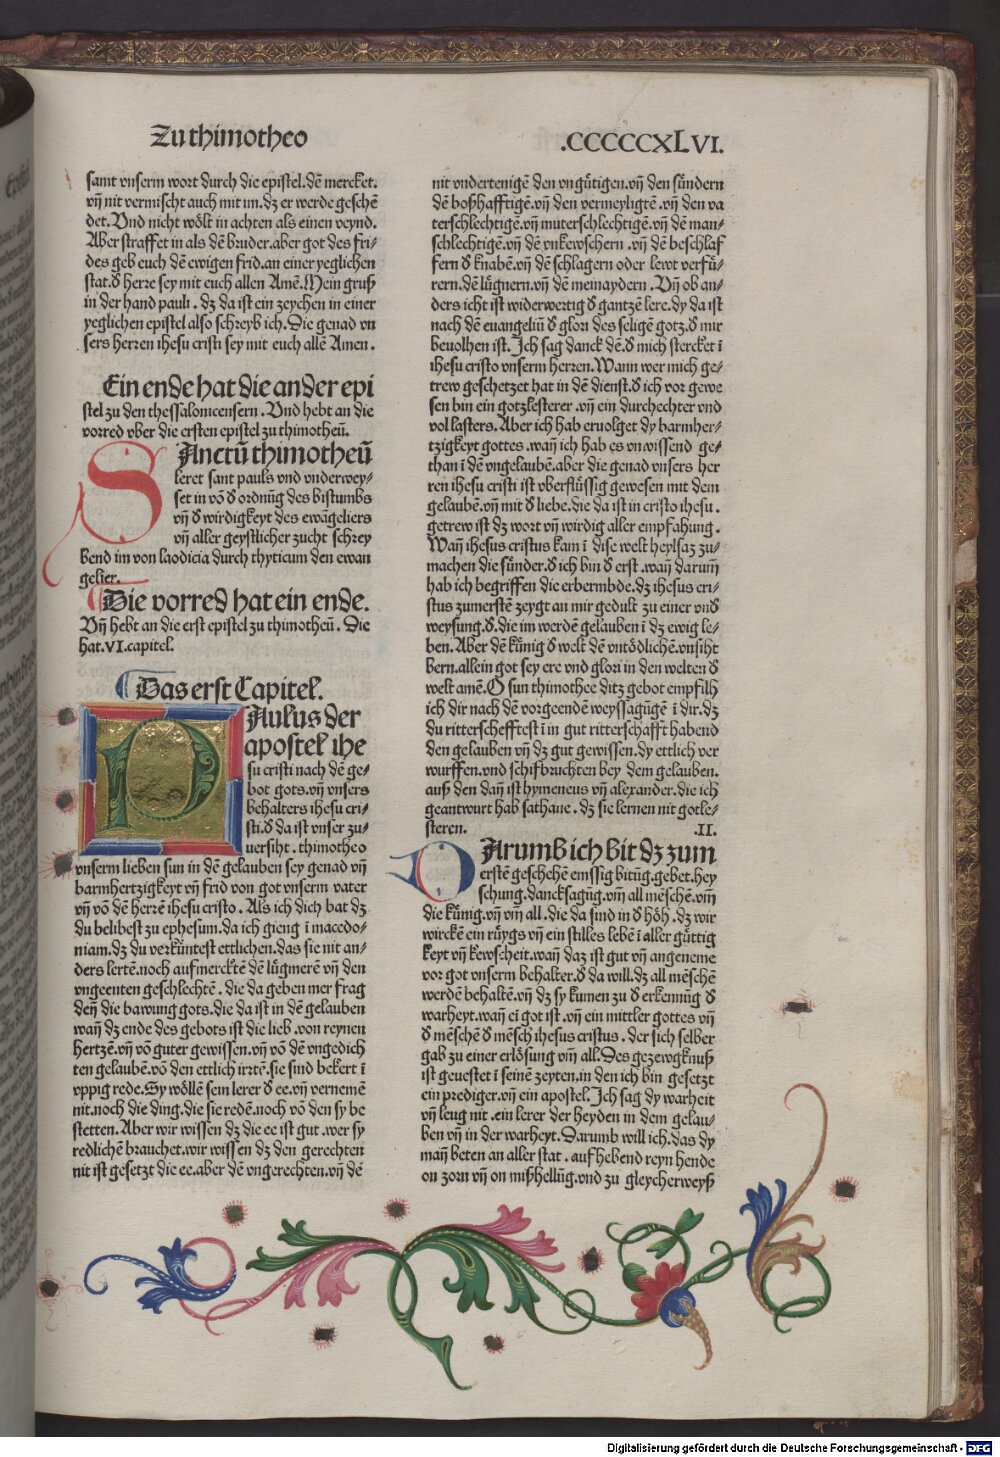 Zu thimotheo
.CCCCCXLVI.
samt vnserm wort durch die epistel.dē mercket.
vn̄ nit vermischt auch mit im.dz er werde geschē
det. Vnd nicht wölt in achten als einen veynd.
Aber straffet in als dē bruder.aber got des fri⸗
des geb euch dē ewigen frid.an einer yeglichen
stat.d herre sey mit euch allen Amē.Mein gruß
in der hand pauli . dz da ist ein zeychen in einer
yeglichen epistel also schreyb ich.Die genad vn
sers herren ihesu cristi sey mit euch allē Amen .
Ein ende hat die ander epi
stel zu den thessalonicensern . Vnd hebt an die
vorred vber die ersten epistel zu thimotheū.
SAnctū thimotheū
leret sant pauls vnd vnderwey⸗
set in vō d ordnūg des bistumbs
vn̄ d wirdigkeyt des ewāgeliers
vn̄ aller geystlicher zucht schrey
bend im von laodicia durch thyticum den ewan
gelier.
Die vorred hat ein ende.
Vn̄ hebt an die erst epistel zu thimotheū . Die
hat.VI.capitel.
Das erst Capitel.
PAulus der
apostel ihe
su cristi nach dē ge⸗
bot gots.vn̄ vnsers
behalters ihesu cri⸗
sti.d da ist vnser zu⸗
uersiht . thimotheo
vnserm lieben sun in dē gelauben sey genad vn̄
barmhertzigkeyt vn̄ frid von got vnserm vater
vn̄ vō dē herrē ihesu cristo . Als ich dich bat dz
du belibest zu ephesum.da ich gieng ī macedo⸗
niam.dz du verkūntest ettlichen.das sie nit an⸗
ders lertē.noch aufmercktē dē lūgmerē vn̄ den
vngeenten geschlechtē . die da geben mer frag
den̄ die bawung gots.die da ist in dē gelauben
wan̄ dz ende des gebots ist die lieb .von reynen
hertzē.vn̄ vō guter gewissen.vn̄ vō dē vngedich
ten gelaubē.vō den ettlich irtē.sie sind bekert ī
vppig rede.Sy wöllē sein lerer d ee.vn̄ vernemē
nit.noch die ding.die sie redē.noch vō den sy be
stetten.Aber wir wissen dz die ee ist gut .wer sy
redlichē brauchet.wir wissen dz den gerechten
nit ist gesetzt die ee.aber dē vngerechten.vn̄ dē
nit vndertenigē den vngūtigen.vn̄ den sūndern
dē boßhafftigē.vn̄ den vermeyligtē .vn̄ den va
terschlechtigē.vn̄ muterschlechtigē.vn̄ dē man⸗
schlechtigē.vn̄ dē vnkewschern .vn̄ dē beschlaf
fern d knabē.vn̄ dē schlagern oder lewt verfū⸗
rern.dē lūgnern.vn̄ dē meinaydern . Vn̄ ob an⸗
ders icht ist widerwertig d gantzē lere.dy da ist
nach dē euangeliū d glori des seligē gotz.d mir
beuolhen ist. Ich sag danck dē.d mich stercket ī
ihesu cristo vnserm herren.Wann wer mich ge⸗
trew geschetzet hat in dē dienst.d ich vor gewe
sen bin ein gotzlesterer .vn̄ ein durchechter vnd
vol lasters. Aber ich hab eruolget dy barmher⸗
tzigkeyt gottes .wan̄ ich hab es vnwissend ge⸗
than ī dē vngelaubē.aber die genad vnsers her
ren ihesu cristi ist vberflūssig gewesen mit dem
gelaubē.vn̄ mit d liebe.die da ist in cristo ihesu .
getrew ist dz wort vn̄ wirdig aller empfahung .
Wan̄ ihesus cristus kam ī dise welt heylsaz zu⸗
machen die sūnder.d ich bin d erst .wan̄ darum̄
hab ich begriffen die erbermbde.dz ihesus cri⸗
stus zumerstē zeygt an mir gedult zu einer vnd
weysung.d.die im werdē gelauben ī dz ewig le⸗
ben. Aber dē kūnig d welt dē vntödlichē.vnsiht
bern.allein got sey ere vnd glori in den welten d
welt amē.O sun thimothee ditz gebot empfilh
ich dir nach den vorgeendē weyssagūgē ī dir.dz
du ritterschefftest ī in gut ritterschafft habend
den gelauben vn̄ dz gut gewissen.dy ettlich ver
wurffen.vnd schifbruchten bey dem gelauben.
auß den dan̄ ist hymeneus vn̄ alexander.die ich
geantwurt hab sathane . dz sie lernen nit gotle⸗
steren. .II.
DArumb ich bit dz zum
erstē geschehē emssig bitūg.gebet.hey
schung.dancksagūg.vm̄ all mēschē.vm̄
die kūnig.vn̄ vm̄ all .die da sind in d höh .dz wir
wirckē ein rūygs vn̄ ein stilles lebē ī aller gūttig
keyt vn̄ kewscheit.wan̄ daz ist gut vn̄ angeneme
vor got vnserm behalter.d da will.dz all mēschē
werdē behaltē.vn̄ dz sy kumen zu d erkennūg d
warheyt.wan̄ ei got ist .vn̄ ein mittler gottes vn̄
d mēschē d mēsch ihesus cristus . der sich selber
gab zu einer erlösung vm̄ all.Des gezewgknuß
ist geuestet ī seinē zeyten.in den ich bin gesetzt
ein prediger.vn̄ ein apostel.Ich sag dy warheit
vn̄ leug nit .ein lerer der heyden in dem gelau⸗
ben vn̄ in der warheyt.Darumb will ich.das dy
man̄ beten an aller stat . auf hebend reyn hende
on zorn vn̄ on mißhellūg.vnd zu gleycherweyß
Digitalisierung gefördert durch die Deutsche Forschungsgemeinschaft - DFG